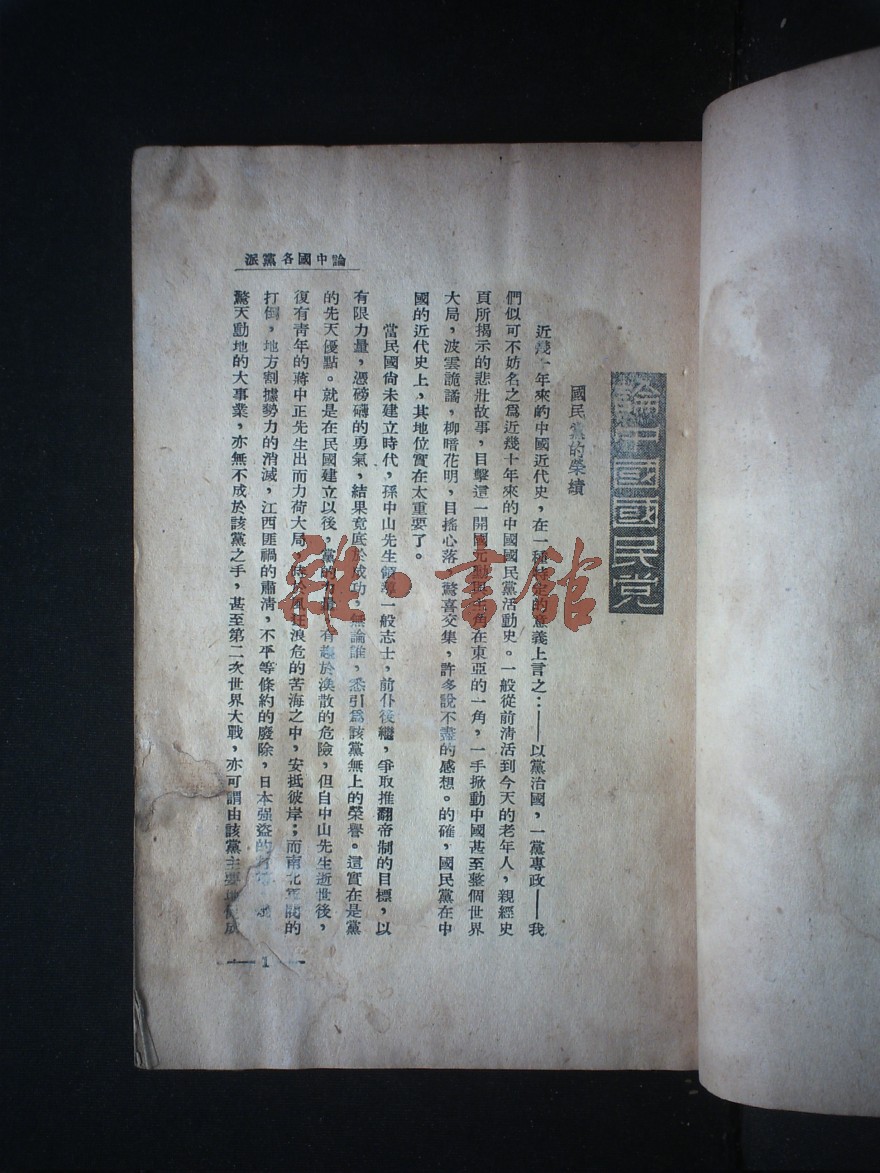 論中國各黨派
論中國國民党
國民黨的榮績
近幾十年來的中國近代史，在一種特定的意義上言之：——以黨治國，一黨專政——我
們似可不妨名之爲近幾十年來的中國國民黨活動史。一般從前清活到今天的老年人，親經史
頁所揭示的悲壯故事，目擊這一開國元勳與主角在東亞的一角，一手掀動中國甚至整個世界
大局，波雲詭譎，柳暗花明，目搖心落，驚喜交集，許多說不盡的感想。的確，國民黨在中
國的近代史上，其地位實在太重要了。
當民國尚未建立時代，孫中山先生領導一般志士，前仆後繼，爭取推翻帝制的目標，以
有限力量，憑磅礴的勇氣，結果竟底於成功，無論誰，悉引爲該黨無上的榮譽。這實在是黨
的先天優點。就是在民國建立以後，黨的力量，有趨於渙散的危險，但自中山先生逝世後，
復有青年的蔣中正先生出而力荷大局，使於風狂浪危的苦海之中，安抵彼岸；而南北軍閥的
打倒，地方割據勢力的消滅，江西匪禍的肅清，不平等條約的廢除，日本强盜的
驚天動地的大事業，亦無不成於該黨之手，甚至第二次世界大戰，亦可謂由該黨主要
1
雜·書館